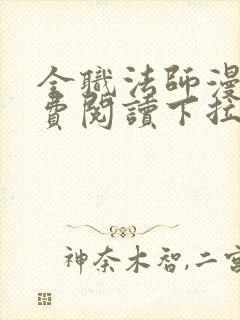 全職法師漫
費閱讀下拉
神奈木智,二宮